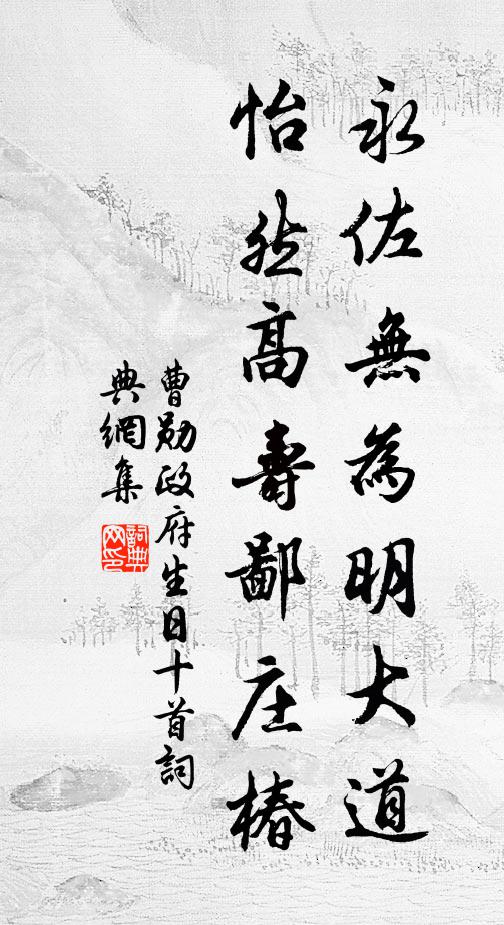 永佐無為明大道
怡然高壽鄙庄椿
曹勛政府生日十首詞
典網集
詞典
网印